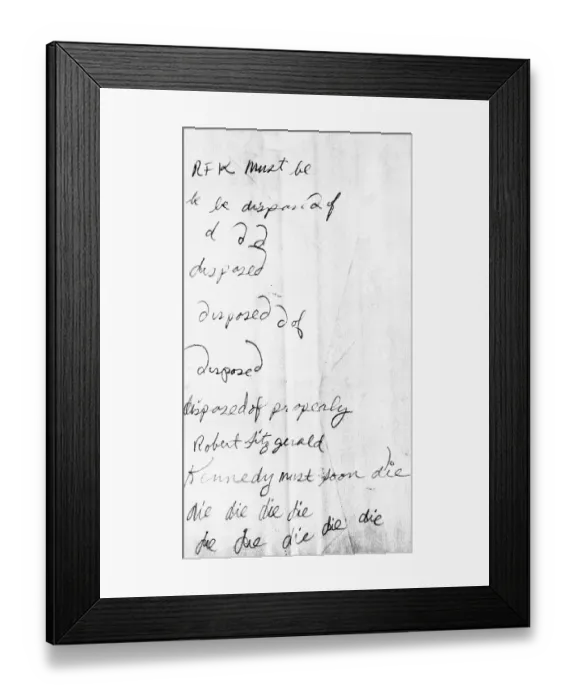 RFK must be
be be disposed of
d d d
disposed
disposed d of
disposed
disposed of properly
Robert Fitzgerald
Kennedy must soon die
die die die die
die die die die die